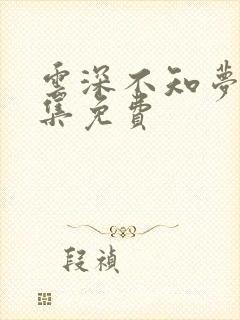 雲深不知夢
集免費
段禎